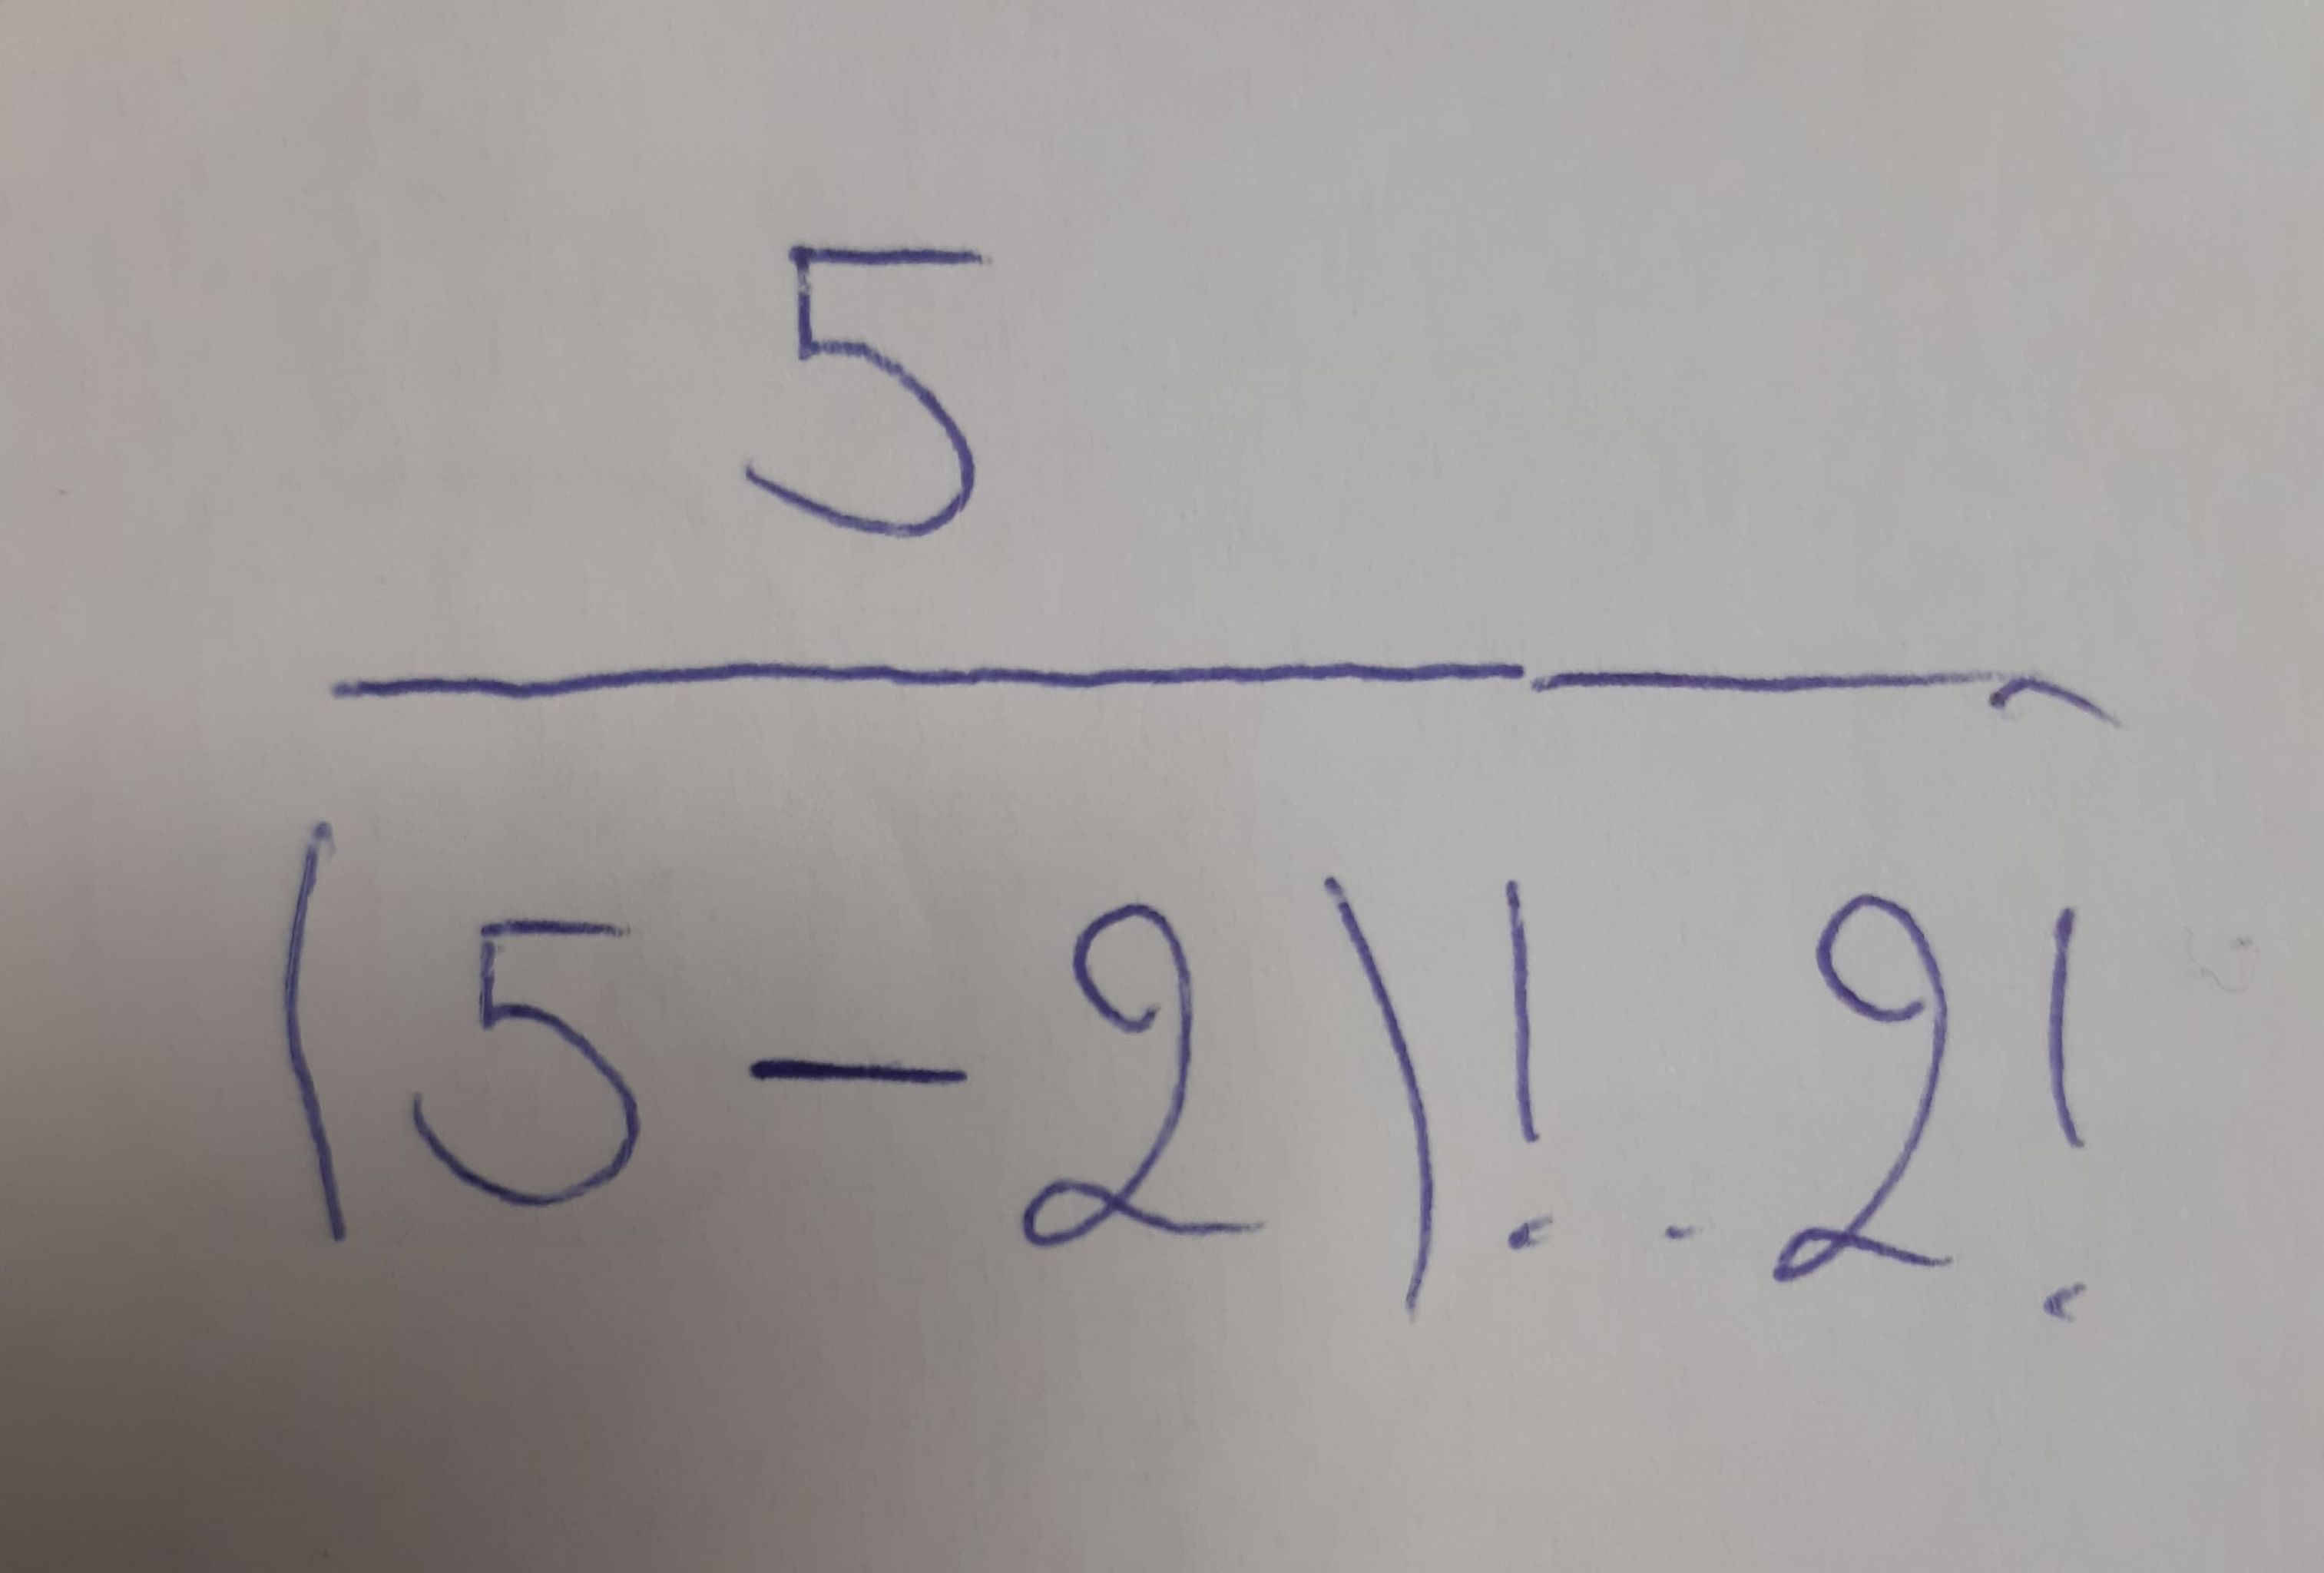 5
(5-2)!.2!